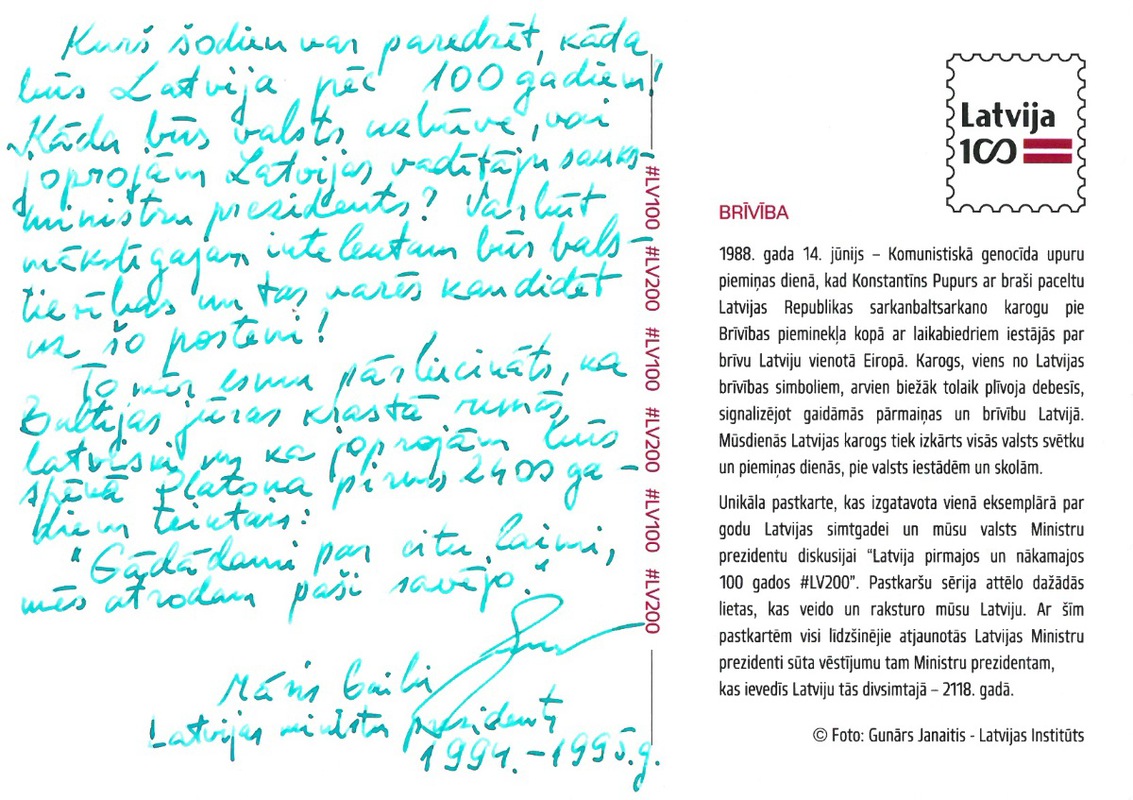 Kurš šodien var paredzēt, kāda
būs Latvija pēc 100 gadiem!
Kāda būs valsts uzbūve, vai
joprojām Latvijas vadītāju sauks
ministru prezidents? Varbūt
mākslīgajam intelektam būs bals-
tiesības un tas varēs kandidēt
uz šo posteni!
To mēr esmu pārliecināts, ka
Baltijas jūras krastā runās
latviski un ka joprojām būs
spēkā Platona pirms 2400 ga-
diem teiktais:
"Gādādami par citu laimi,
mēs atrodam paši savējo."
Māris Gailis
Latvijas ministru prezidents
1994.-1995.g.
#LV100 #LV200 #LV100 #LV200 #LV100 #LV200
Latvija
100
BRĪVĪBA
1988. gada 14. jūnijs – Komunistiskā genocīda upuru
piemiņas dienā, kad Konstantīns Pupurs ar braši paceltu
Latvijas Republikas sarkanbaltsarkano karogu pie
Brīvības pieminekļa kopā ar laikabiedriem iestājās par
brīvu Latviju vienotā Eiropā. Karogs, viens no Latvijas
brīvības simboliem, arvien biežāk tolaik plīvoja debesīs,
signalizējot gaidāmās pārmaiņas un brīvību Latvijā.
Mūsdienās Latvijas karogs tiek izkārts visās valsts svētku
un piemiņas dienās, pie valsts iestādēm un skolām.
Unikāla pastkarte, kas izgatavota vienā eksemplārā par
godu Latvijas simtgadei un mūsu valsts Ministru
prezidentu diskusijai "Latvija pirmajos un nākamajos
100 gados #LV200". Pastkaršu sērija attēlo dažādās
lietas, kas veido un raksturo mūsu Latviju. Ar šīm
pastkartēm visi līdzšinējie atjaunotās Latvijas Ministru
prezidenti sūta vēstījumu tam Ministru prezidentam,
kas ievedīs Latviju tās divsimtajā – 2118. gadā.
© Foto: Gunārs Janaitis - Latvijas Institūts